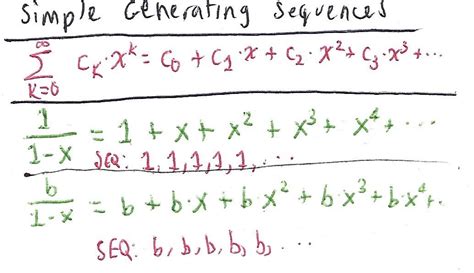 Simple Generating Sequences
∞
∑ C_k·x^k = C_0 + C_1·x + C_2·x^2 + C_3·x^3 + ···
k=0
1/(1-x) = 1 + x + x^2 + x^3 + x^4 + ···
SEQ: 1, 1, 1, 1, 1, ···
b/(1-x) = b + b·x + b·x^2 + b·x^3 + b·x^4 + ··
SEQ: b, b, b, b, b, ···